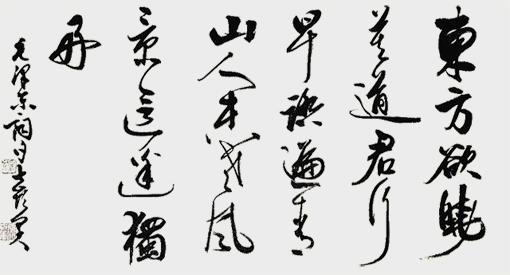 東方欲曉
莫道君行
早踏遍青
山人未老風
景這邊獨
好
毛澤東詞